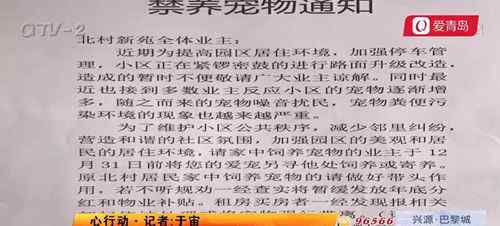 禁养宠物通知
QTV-2
爱青岛
北村新苑全体业主：
近期为提高园区居住环境，加强停车管
理，小区正在紧锣密鼓的进行路面升级改造，
造成的暂时不便敬请广大业主谅解。同时最
近也接到多数业主反应小区的宠物逐渐增
多，随之而来的宠物噪音扰民，宠物粪便污
染环境的现象也越来越严重。
为了维护小区公共秩序，减少邻里纠纷，
营造和谐的社区氛围，加强园区的美观和居
民的居住环境，请家中饲养宠物的业主于12
月31日前将您的爱宠另寻他处饲养或寄养。
原北村居民家中饲养宠物的请做好带头作
用，若不听规劝一经查实将暂缓发放年底分
红和物业补贴。租房买房者一经发现报相关
心行动·记者:于宙
96566
兴源·巴黎城